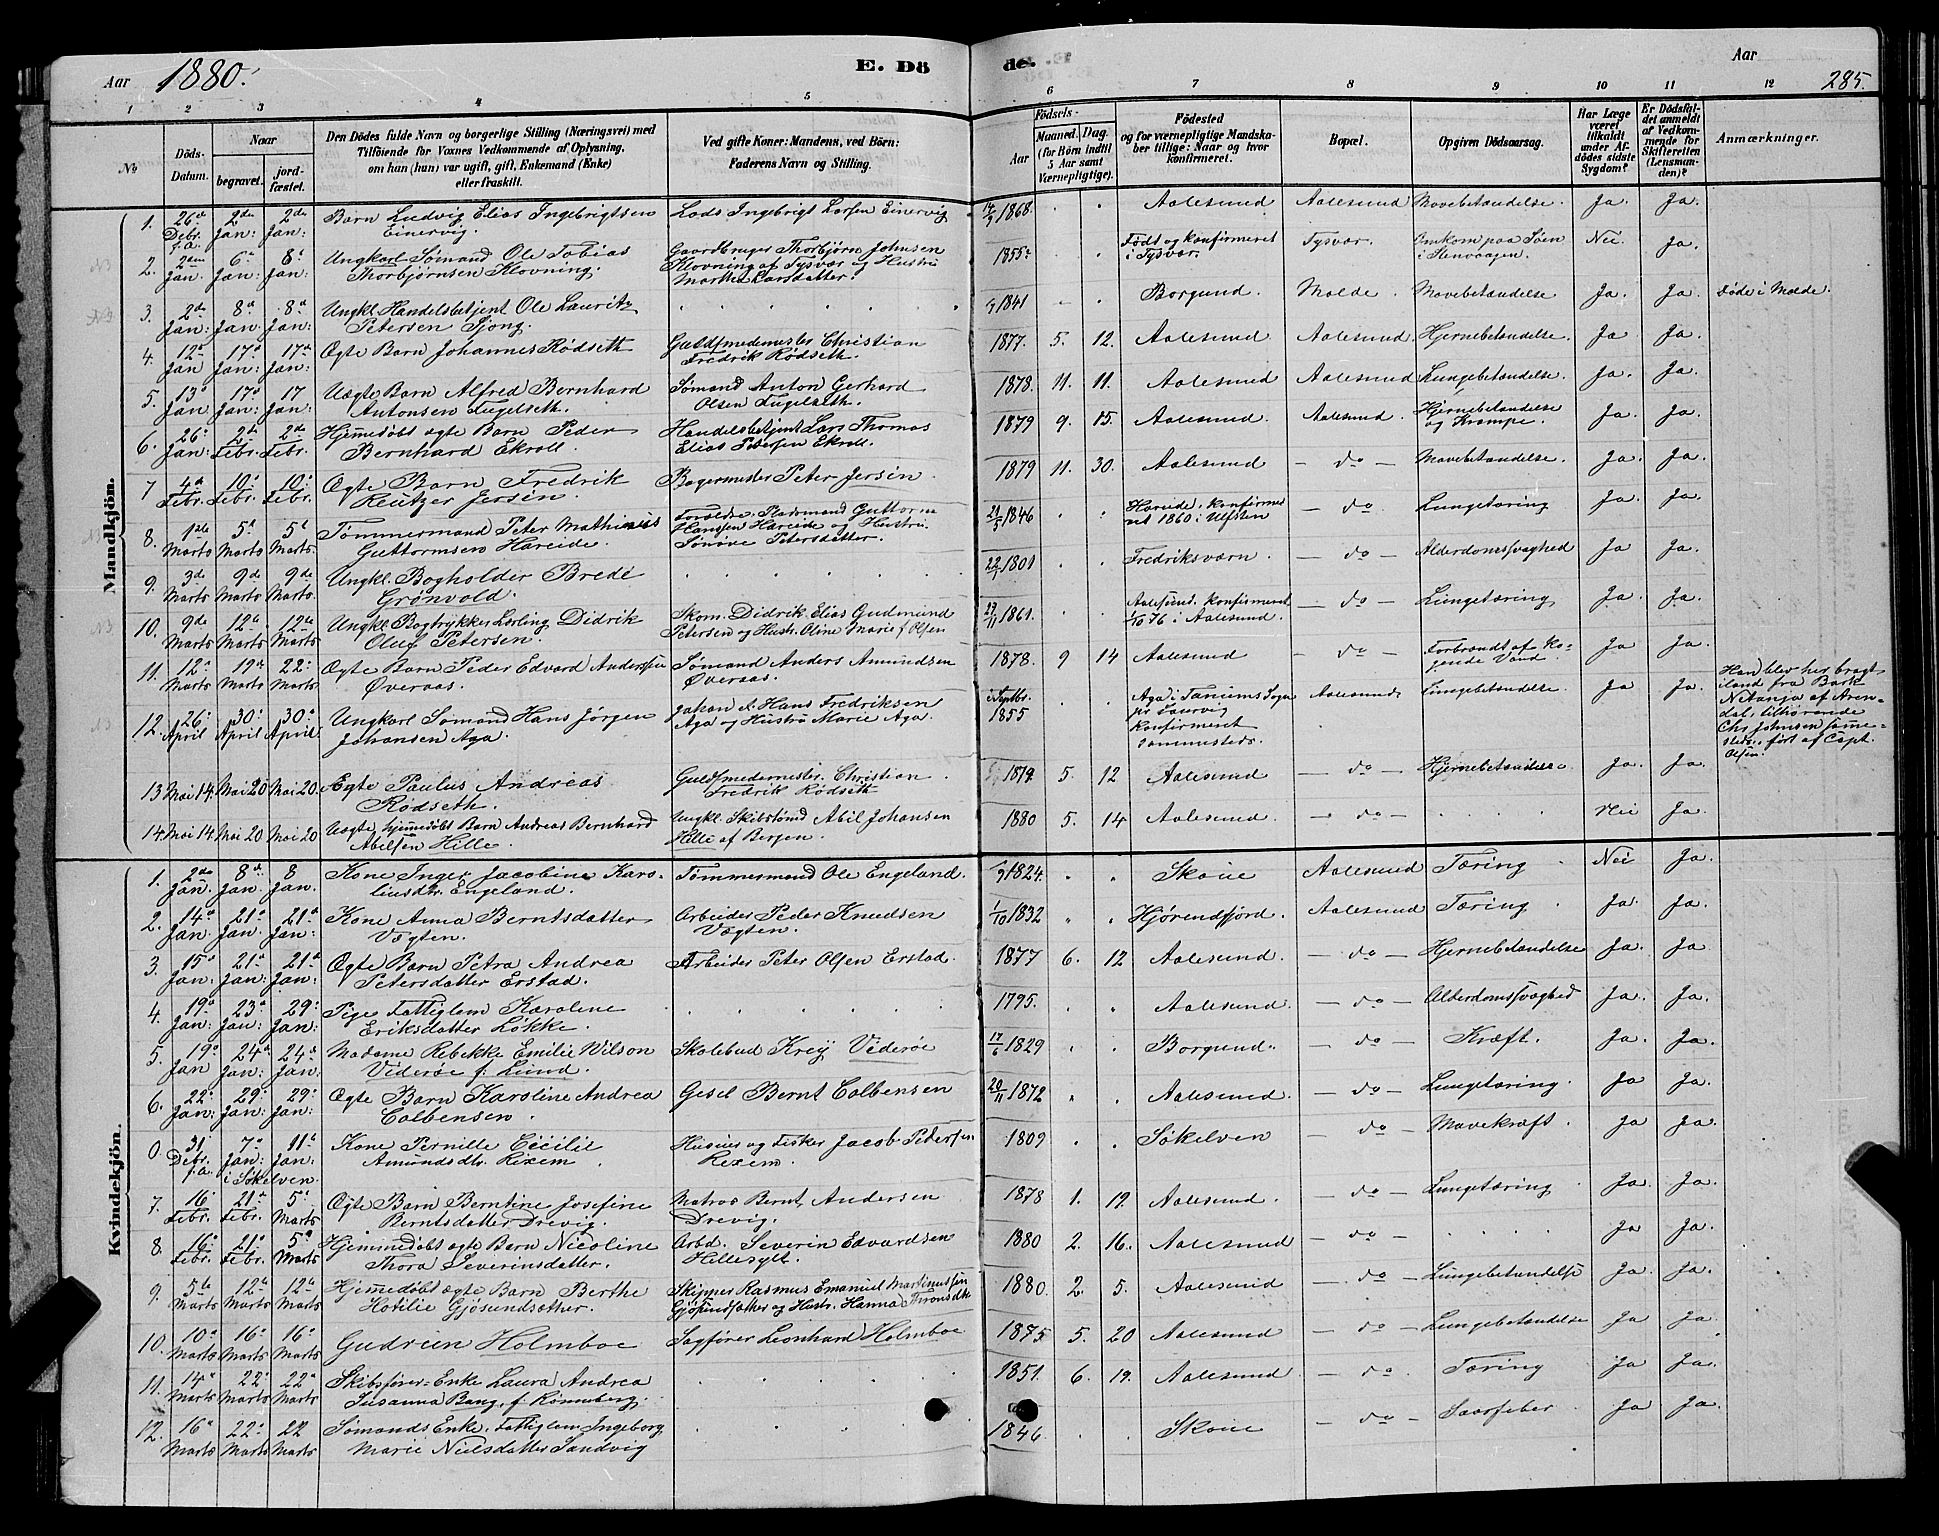 Aar 1880. E. Dö de. Aar 285.
1 2 3 4 5 6 7 8 9 10 11 12
No
Döds-Datum.
Naar
begravet.
jordfæstet.
Den Dödes fulde Navn og borgerlige Stilling (Næringsvei) med
Tilföiende for Voxnes Vedkommende af Oplysning,
om han (hun) var ugift, gift, Enkemand (Enke)
eller fraskilt.
Ved gifte Koner: Mandens, ved Börn:
Faderens Navn og Stilling.
Födsels-
Aar
Maaned. Dag.
(for Börn indtil
5 Aar samt
Værnepligtige).
Födested
og for værnepligtige Mandska-
ber tillige: Naar og hvor
konfirmeret.
Bopæl.
Opgiven Dödsaarsag.
Har Læge
været
tilkaldt
under Af-
dödes sidste
Sygdom?
Er Dödsfal-
det anmeldt
af Vedkom-
mende for
Skifteretten
(Lensman-
den)?
Anmærkninger.
Mandkjön.
1. 26de Debr. f.a. 2den Jan: 2den Jan: Barn Ludvig Elias Ingebrigtsen Lods Ingebrigt Larsen Einervig 14/9 1868. Aalesund Aalesund Mavebetændelse. Ja. Ja.
Einervig.
2. 2den Jan 6te Jan: 8de Jan: Ungkarl Sømand Ole Tobias Gaardbruger Thorbjørn Johnsen 1855. Født og konfirmeret Tysvær. Omkom paa Søen Nei Ja.
Thorbjørnsen Klovning. Klovning af Tysvær og Hustru i Tysvær. i Stenvaagen.
Martha Larsdatter.
3. 2den Jan: 8de Jan. 8de Jan: Ungkl. Handelsbetjent Ole Lauritz 1841 Borgund. Molde. Mavebetændelse Ja. Ja. Døde i Molde.
Petersen Sjong.
4. 12te Jan 17de Jan: 17de Jan: Ægte Barn Johannes Rødseth Guldsmedemester Christian 1877. 5. 12. Aalesund Aalesund. Hjernebetændelse. Ja Ja.
Fredrik Rødseth.
5. 13de Jan 17de Jan: 17 Jan: Uægte Barn Alfred Bernhard Sømand Anton Gerhard 1878. 11. 11. Aalesund Aalesund Lungebetændelse. Ja. Ja.
Antonsen Fugelseth. Olsen Fugelseth.
6. 26de Jan: 2den Febr. 2den Febr. Hjemmedøbt ægte Barn Peder Handelsbetjent Lars Thomas 1879 9. 15. Aalesund. Aalesund. Hjernebetændelse Ja. Ja.
Bernhard Ekroll. Elias Petersen Ekroll. og Krampe.
7 4de Febr. 10de Febr. 10de Febr. Ægte Barn Fredrik Bagermester Peter Jersin. 1879 11. 30. Aalesund – do – Mavebetændelse. Ja. Ja.
Reutzer Jersin.
8. 1ste Marts 5te Marts 5te Marts. Tømmermand Peter Mathinus Pladsmand Guttorm 1846 Hareide, konfirme- – do – Lungetæring Ja Ja
Guttormsen Hareide. Hanssen Hareide og Hustru ret 1860 i Ulfsten
Sønnøve Petersdatter.
9. 3de Marts 9de Marts 9de Marts. Ungkl. Bogholder Brede 22/1 1801 Fredriksværn. – do – Alderdomssvaghed Ja Ja
Grønvold.
10. 9de Marts 12te Marts 12te Marts Ungkl. Bogtrykker Lærling Didrik Skom. Didrik Elias Gudmund 1861. Aalesund. konfirmeret – do – Lungetæring Ja Ja.
Oluf Petersen. Petersen og Hustr. Oline Marie f Olsen 1/10 76 i Aalesund.
11. 12te Marts 19de Marts 22de Marts. Ægte Barn Peder Edvard Andersen Sømand Anders Amundsen 1878. 9 14 Aalesund – do – Forbrændt af Ko- Ja Ja.
Øveraas. Øveraas. gende Vand.
12. 26de April 30de April 30de April. Ungkarl Sømand Hans Jørgen Johan d. Hans Fredriksen i Septbr. 1855 Aga i Tanums Sogn Aalesund. Lungebetændelse. Ja Ja. Han blev her bragt
Johansen Aga. Aga og Hustru Marie Aga. iland fra Bark
konfirmeret Nitanja af Aren-
sammesteds. dal, tilhørende
Chr Johnsen samme-
steds, ført af Capt.
Olsen.
13 Mai 14. Mai 20 Mai 20. Ægte Paulus Andreas Guldsmedemester. Christian 1879. 5. 12 Aalesund – do – Hjernebetændelse Ja. Ja.
Rødseth. Fredrik Rødseth
14. Mai 14. Mai 20 Mai 20 Uægte hjemmedøbt Barn Andreas Bernhard Ungkl. Skibstømd Abil Johansen 1880 5. 14 Aalesund. – do – Nei Ja.
Abelsen Hille. Hille af Bergen.
Kvindekjön.
1. 2den Jan. 8de Jan. 8 Jan. Kone Inger Jacobine Karo- Tømmermand Ole Engeland. 1824. Skoue Aalesund Tæring Nei Ja.
liusdtr. Engeland.
2. 14de Jan. 21de Jan. 21de Jan: Kone Anna Berntsdatter Arbeider Peder Knudsen 1/10 1832 Hjørendfjord. Aalesund Tæring Ja. Ja.
Vægten. Vægten.
3. 15de Jan: 21de Jan: 21de Jan: Ægte Barn Petra Andrea Arbeider Peter Olsen Erstad. 1877 6. 12 Aalesund. – do – Hjernebetændelse Ja. Ja
Petersdatter Erstad.
4. 19de Jan: 23de Jan: 29: Jan: Pige Fattiglem Karolene 1795. Aalesund. – do – Alderdomssvaghed Ja. Ja.
Eriksdatter Løkke.
5. 19de Jan 24de Jan: 24de Jan: Madame Rebekke Emilie Wilson Skolebud Krey Viderøe 17/6 1829 Borgund. – do – Kræft. Ja. Ja.
Viderøe f. Lund.
6. 22de Jan: 29: Jan: 29: Jan: Ægte Barn Karoline Andrea Gesel Bernt Colbensen 20/11 1872 Aalesund. – do – Lungetæring. Ja Ja.
Colbensen.
0 31 Debr. f.a. 7de Jan: 11te Jan: Kone Pernille Cicilie Husmer og Fisker Jacob Pedersen 1809 Søkelven – do – Mavekræft Ja Ja
i Søkelven Amundsdtr. Rexem Rexem.
7. 16 Febr. 21de Febr. 5te Marts Ægte Barn Berntine Josefine Matros Bernt Andersen 1878 1. 19. Aalesund. – do – Lungetæring Ja. Ja.
Berntsdatter Drevig. Drevig.
8. 16de Febr. 21de Febr. 5te Marts Hjemmedøbt ægte Barn Nicoline Arbd. Severin Edvardsen 1880 2. 16. Aalesund – do – Ja Ja.
Thora Severinsdatter. Hellesylt.
9. 5te Marts 12te Marts 12te Marts Hjemmedøbt ægte Barn Berthe Skipper Rasmus Emanuel Martinussen 1880. 2. 5. Aalesund – do – Lungebetændelse Ja. Ja.
Hotilie Gjøsundsæther. Gjøsundsæther og Hustr. Hanna
10. 10de Marts 16de Marts 16de Marts Gudrun Holmboe Sagfører Leonhard Holmboe 1875 5. 20 Aalesund – do – Lungebetændelse Ja Ja.
11. 14de Marts 22de Marts 22de Marts Skibsfører-Enke Laura Andrea 1851. 6. 19. Aalesund – do – Tæring Ja Ja.
Susanna Bang, f. Rønneberg.
12. 16de Marts 22de Marts 22 Marts Sømands Enke. Fattiglem Ingeborg 1846 Skoue – do – Saarfeber Ja Ja.
Marie Nielsdatter Sandvig